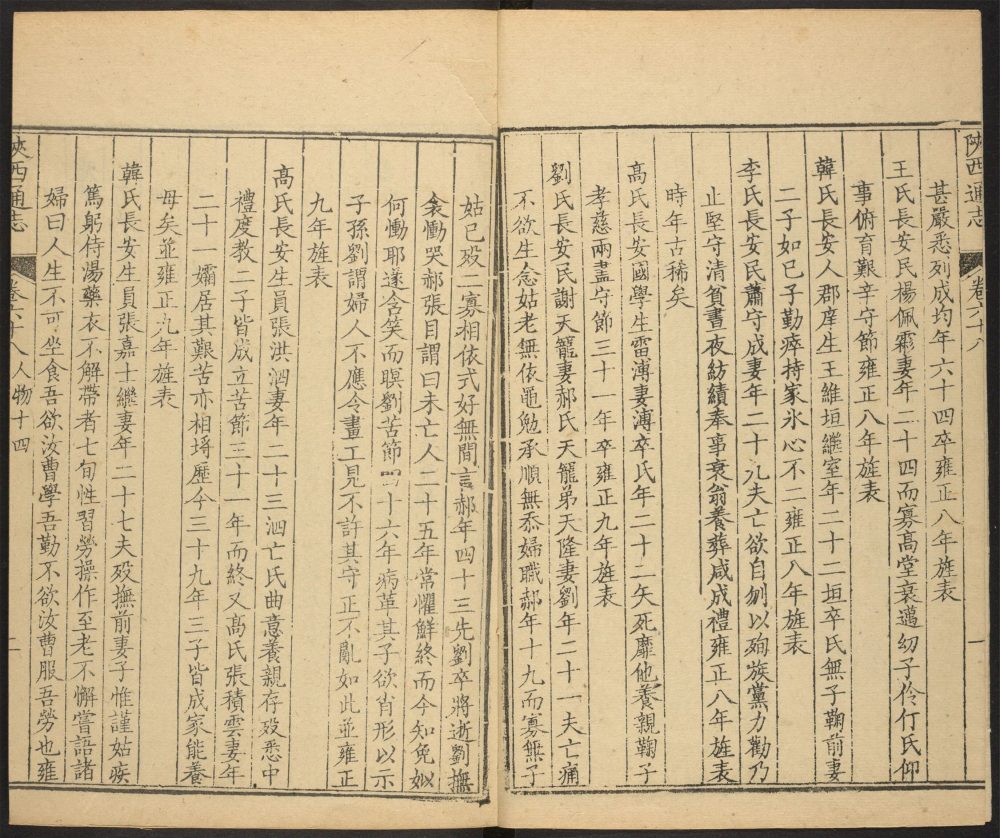 陝西通志
卷六十八
一
甚嚴悉列成均年六十四卒雍正八年旌表
王氏長安民楊佩霱妻年二十四而寡高堂衰邁幼子伶仃氏仰
事俯育艱辛守節雍正八年旌表
韓氏長安人郡庠生王維垣繼室年二十二垣卒氏無子鞠前妻
二子如己子勤瘁持家氷心不二雍正八年旌表
李氏長安民蕭守成妻年二十九夫亡欲自刎以殉族黨力勸乃
止堅守清貧晝夜紡績奉事衰翁養葬咸成禮雍正八年旌表
時年古稀矣
高氏長安國學生雷溥妻溥卒氏年二十二矢死靡他養親鞠子
孝慈兩盡守節三十一年卒雍正九年旌表
劉氏長安民謝天寵妻郝氏天寵弟天隆妻劉年二十一夫亡痛
不欲生念姑老無依黽勉承順無忝婦職郝年十九而寡無子
姑已歿二寡相依式好無間言郝年四十三先劉卒將逝劉撫
衾慟哭郝張目謂曰未亡人二十五年常懼鮮終而今知免姒
何慟耶遂含笑而暝劉苦節四十六年病革其子欲肖形以示
子孫劉謂婦人不應令畫工見不許其守正不亂如此並雍正
九年旌表
高氏長安生員張洪泗妻年二十三泗亡氏曲意養親存歿悉中
禮度教二子皆成立苦節三十一年而終又高氏張積雲妻年
二十一孀居其艱苦亦相埒歷今三十九年三子皆成家能養
母矣並雍正九年旌表
韓氏長安生員張嘉士繼妻年二十七夫歿撫前妻子惟謹姑疾
篤躬侍湯藥衣不解帶者七旬性習勞操作至老不懈嘗語諸
婦曰人生不可坐食吾欲汝曹學吾勤不欲汝曹服吾勞也雍
陝西通志
卷六十八人物十四
一